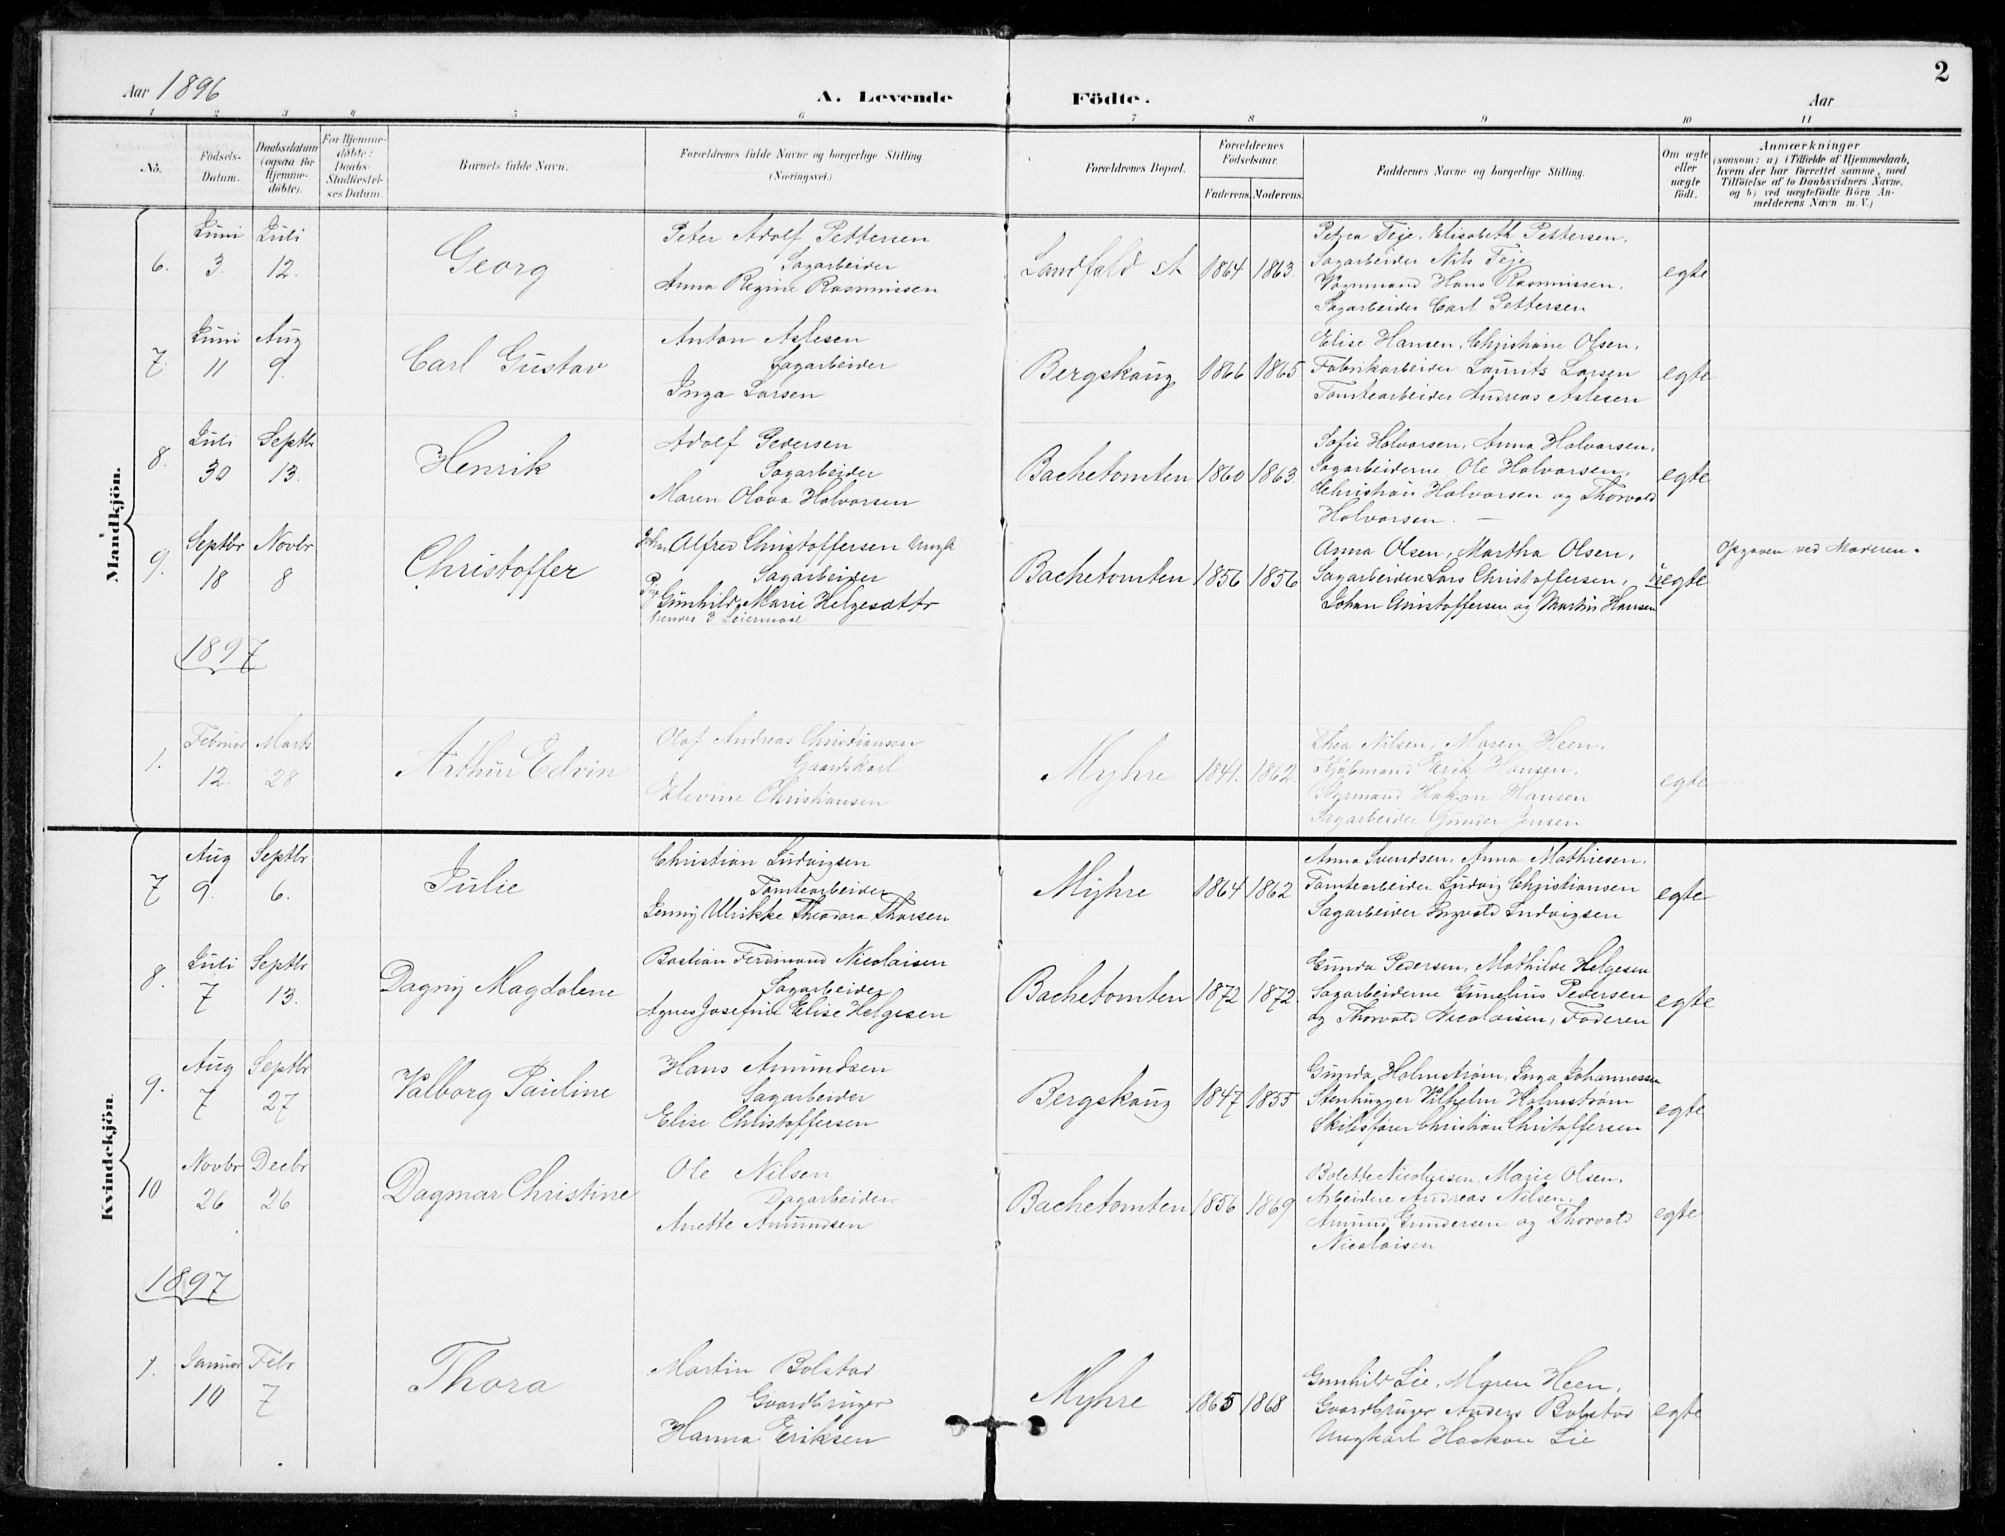 2
Aar 1896
A. Levende Födte.
Aar
1 2 3 4 5 6 7 8 9 10 11
No.
Födsels-Datum.
Daabsdatum (ogsaa for Hjemmedöbte).
For Hjemmedöbte: Daabs-Stadfæstelses Datum.
Barnets fulde Navn.
Forældrenes fulde Navne og borgerlige Stilling. (Næringsvei.)
Forældrenes Bopæl.
Forældrenes Födselsaar.
Faderens. Moderens.
Faddernes Navne og borgerlige Stilling.
Om ægte eller uægte födt.
Anmærkninger
(saasom: a) i Tilfælde af Hjemmedaab, hvem der har forrettet samme, med Tilföielse af to Daabsvidners Navne, og b) ved uægtefödte Börn Anmelderens Navn m. V.)
Mandkjön.
6. Juni 3. Juli 12. Georg
Peter Adolf Pettersen
Sagarbeider
Anna Regine Rasmussen
Landfald st 1864 1863.
Petra Teje, Elisabeth Pettersen,
Sagarbeider Nils Teje
Vognmand Hans Rasmussen.
Sagarbeider Carl Pettersen
egte
7. Juni 11 Aug 9. Carl Gustav
Anton Aslesen
Sagarbeider
Inga Larsen
Bergskaug 1866 1865
Elise Hansen, Christiane Olsen,
Fabrikarbeider Laurits Larsen
Tomtearbeider Andreas Aslesen
egte
8. Juli 30 Septbr 13. Henrik
Adolf Pedersen
Sagarbeider
Maren Olava Halvorsen
Bachetomten 1860 1863.
Sofie Halvorsen, Anna Halvorsen,
Sagarbeiderne Ole Halvorsen,
Christian Halvorsen og Thorvald
Halvorsen. —
egte
9. Septbr 18 Novbr 8 Christoffer
Johan Alfred Christoffersen Ungk
Sagarbeider
Pg Gunhild Marie Helgesdttr
hendes 3 Leiermaal
Bachetomten 1856 1856
Anna Olsen, Martha Olsen,
Sagarbeidere Lars Christoffersen,
Johan Christoffersen og Martin Hansen
uegte
Opgaven ved Moderen.
1897
1. Februar 12. Marts 28 Arthur Edvin
Olaf Andreas Christiansen
Gaardskarl
Elevine Christiansen
Myhre 1841. 1862.
Thea Nilsen, Maren Heen,
Kjøbmand Erik Hansen,
Styrmand Hakon Hansen
Sagarbeider Gunder Jensen
egte
Kvindekjön.
7 Aug 9. Septbr 6. Julie
Christian Ludvigsen
Tomtearbeider
Jenny Ulrikke Theodora Thorsen
Myhre 1864 1862
Anna Svendsen, Anna Mathiesen,
Tomtearbeider Ludvig Christiansen
Sagarbeider Ingvald Ludvigsen
egte
8. Juli 7 Septbr 13. Dagny Magdalene
Bastian Ferdinand Nicolaisen
Sagarbeider
Agnes Josefine Elise Helgesen
Bachetomten 1872 1872.
Gunda Pedersen, Mathilde Helgesen
Sagarbeiderne Gunelius Pedersen
og Thorvald Nicolaisen, Faderen
egte
9. Aug 7 Septbr 27 Valborg Pauline
Hans Amundsen
Sagarbeider
Elise Christoffersen
Bergskaug 1847 1855
Gunda Holmstrøm, Inga Johannessen
Stenhugger Vilhelm Holmstrøm
Skibsfører Christian Christoffersen
egte
10 Novbr 26 Decbr 26 Dagmar Christine
Ole Nilsen
Dagarbeider
Anette Amundsen
Bachetomten 1856 1869
Bolette Nicolaisen, Marie Olsen,
Arbeidere Andreas Nilsen,
Amund Gundersen og Thorvald
Nicolaisen
egte
1897
1. Januar 10 Febr 7 Thora
Martin Bolstad
Gaardbruger
Hanna Eriksen
Myhre 1865 1868
Gunhild Lie, Maren Heen,
Gaardbruger Anders Bolstad
Ungkarl Haakon Lie
egte